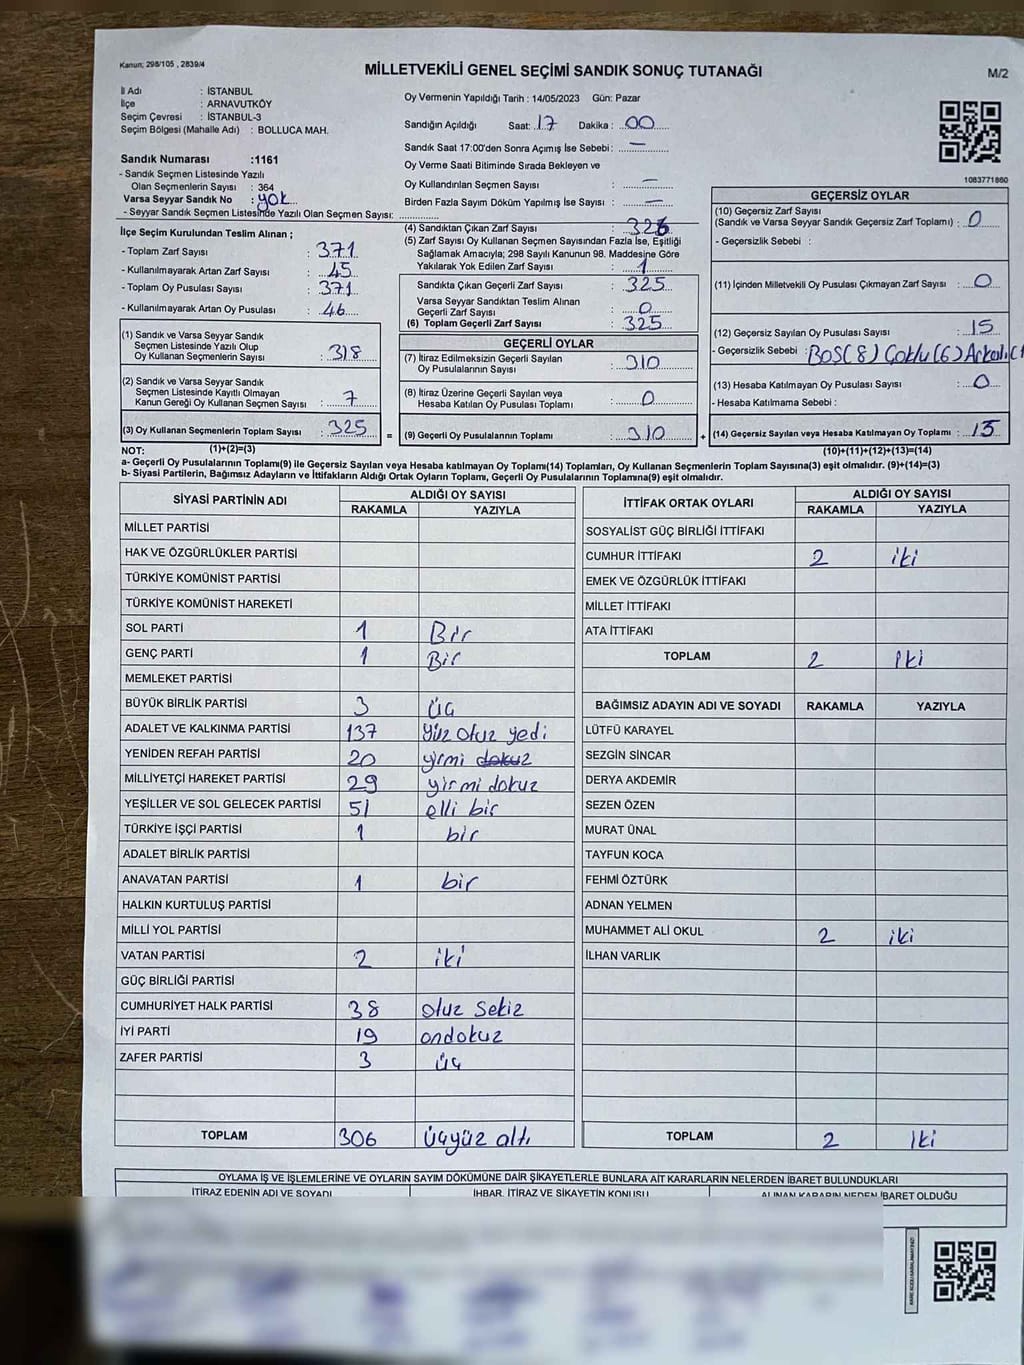 Kanun; 298/105 , 2839/4
MİLLETVEKİLİ GENEL SEÇİMİ SANDIK SONUÇ TUTANAĞI
M/2
İl Adı : İSTANBUL
İlçe : ARNAVUTKÖY
Seçim Çevresi : İSTANBUL-3
Seçim Bölgesi (Mahalle Adı) : BOLLUCA MAH.
Sandık Numarası :1161
- Sandık Seçmen Listesinde Yazılı
Olan Seçmenlerin Sayısı : 364
Varsa Seyyar Sandık No : yok
- Seyyar Sandık Seçmen Listesinde Yazılı Olan Seçmen Sayısı: ..............
İlçe Seçim Kurulundan Teslim Alınan ;
- Toplam Zarf Sayısı : 371
- Kullanılmayarak Artan Zarf Sayısı : 45
- Toplam Oy Pusulası Sayısı : 371
- Kullanılmayarak Artan Oy Pusulası : 46
(1) Sandık ve Varsa Seyyar Sandık
Seçmen Listesinde Yazılı Olup
Oy Kullanan Seçmenlerin Sayısı : 318
(2) Sandık ve Varsa Seyyar Sandık
Seçmen Listesinde Kayıtlı Olmayan
Kanun Gereği Oy Kullanan Seçmen Sayısı : 7
(3) Oy Kullanan Seçmenlerin Toplam Sayısı : 325
(1)+(2)=(3)
Oy Vermenin Yapıldığı Tarih : 14/05/2023 Gün: Pazar
Sandığın Açıldığı Saat: 17 Dakika : 00
Sandık Saat 17:00'den Sonra Açımış İse Sebebi : —
Oy Verme Saati Bitiminde Sırada Bekleyen ve
Oy Kullandırılan Seçmen Sayısı : —
Birden Fazla Sayım Döküm Yapılmış İse Sayısı : —
(4) Sandıktan Çıkan Zarf Sayısı : 326
(5) Zarf Sayısı Oy Kullanan Seçmen Sayısından Fazla İse, Eşitliği
Sağlamak Amacıyla; 298 Sayılı Kanunun 98. Maddesine Göre
Yakılarak Yok Edilen Zarf Sayısı : 1
Sandıkta Çıkan Geçerli Zarf Sayısı : 325
Varsa Seyyar Sandıktan Teslim Alınan
Geçerli Zarf Sayısı : 0
(6) Toplam Geçerli Zarf Sayısı : 325
GEÇERLİ OYLAR
(7) İtiraz Edilmeksizin Geçerli Sayılan
Oy Pusulalarının Sayısı : 310
(8) İtiraz Üzerine Geçerli Sayılan veya
Hesaba Katılan Oy Pusulası Toplamı : 0
= (9) Geçerli Oy Pusulalarının Toplamı : 310
1083771860
GEÇERSİZ OYLAR
(10) Geçersiz Zarf Sayısı
(Sandık ve Varsa Seyyar Sandık Geçersiz Zarf Toplamı) : 0
- Geçersizlik Sebebi :
(11) İçinden Milletvekili Oy Pusulası Çıkmayan Zarf Sayısı : 0
(12) Geçersiz Sayılan Oy Pusulası Sayısı : 15
- Geçersizlik Sebebi : Boş(8) Çoklu(6)
(13) Hesaba Katılmayan Oy Pusulası Sayısı : 0
- Hesaba Katılmama Sebebi :
+ (14) Geçersiz Sayılan veya Hesaba Katılmayan Oy Toplamı : 15
(10)+(11)+(12)+(13)=(14)
NOT:
a- Geçerli Oy Pusulalarının Toplamı(9) ile Geçersiz Sayılan veya Hesaba katılmayan Oy Toplamı(14) Toplamları, Oy Kullanan Seçmenlerin Toplam Sayısına(3) eşit olmalıdır. (9)+(14)=(3)
b- Siyasi Partilerin, Bağımsız Adayların ve İttifakların Aldığı Ortak Oyların Toplamı, Geçerli Oy Pusulalarının Toplamına(9) eşit olmalıdır.
SİYASİ PARTİNİN ADI ALDIĞI OY SAYISI
RAKAMLA YAZIYLA
MİLLET PARTİSİ
HAK VE ÖZGÜRLÜKLER PARTİSİ
TÜRKİYE KOMÜNİST PARTİSİ
TÜRKİYE KOMÜNİST HAREKETİ
SOL PARTİ 1 Bir
GENÇ PARTİ 1 Bir
MEMLEKET PARTİSİ
BÜYÜK BİRLİK PARTİSİ 3 üç
ADALET VE KALKINMA PARTİSİ 137 yüz otuz yedi
YENİDEN REFAH PARTİSİ 20 yirmi dokuz
MİLLİYETÇİ HAREKET PARTİSİ 29 yirmi dokuz
YEŞİLLER VE SOL GELECEK PARTİSİ 51 elli bir
TÜRKİYE İŞÇİ PARTİSİ 1 bir
ADALET BİRLİK PARTİSİ
ANAVATAN PARTİSİ 1 bir
HALKIN KURTULUŞ PARTİSİ
MİLLİ YOL PARTİSİ
VATAN PARTİSİ 2 iki
GÜÇ BİRLİĞİ PARTİSİ
CUMHURİYET HALK PARTİSİ 38 otuz sekiz
İYİ PARTİ 19 ondokuz
ZAFER PARTİSİ 3 üç
TOPLAM 306 üçyüz altı
İTTİFAK ORTAK OYLARI ALDIĞI OY SAYISI
RAKAMLA YAZIYLA
SOSYALİST GÜÇ BİRLİĞİ İTTİFAKI
CUMHUR İTTİFAKI 2 iki
EMEK VE ÖZGÜRLÜK İTTİFAKI
MİLLET İTTİFAKI
ATA İTTİFAKI
TOPLAM 2 İki
BAĞIMSIZ ADAYIN ADI VE SOYADI RAKAMLA YAZIYLA
LÜTFÜ KARAYEL
SEZGİN SİNCAR
DERYA AKDEMİR
SEZEN ÖZEN
MURAT ÜNAL
TAYFUN KOCA
FEHMİ ÖZTÜRK
ADNAN YELMEN
MUHAMMET ALİ OKUL 2 iki
İLHAN VARLIK
TOPLAM 2 İki
OYLAMA İŞ VE İŞLEMLERİNE VE OYLARIN SAYIM DÖKÜMÜNE DAİR ŞİKAYETLERLE BUNLARA AİT KARARLARIN NELERDEN İBARET BULUNDUKLARI
İTİRAZ EDENİN ADI VE SOYADI İHBAR, İTİRAZ VE ŞİKAYETİN KONUSU ALINAN KARARIN NEDEN İBARET OLDUĞU